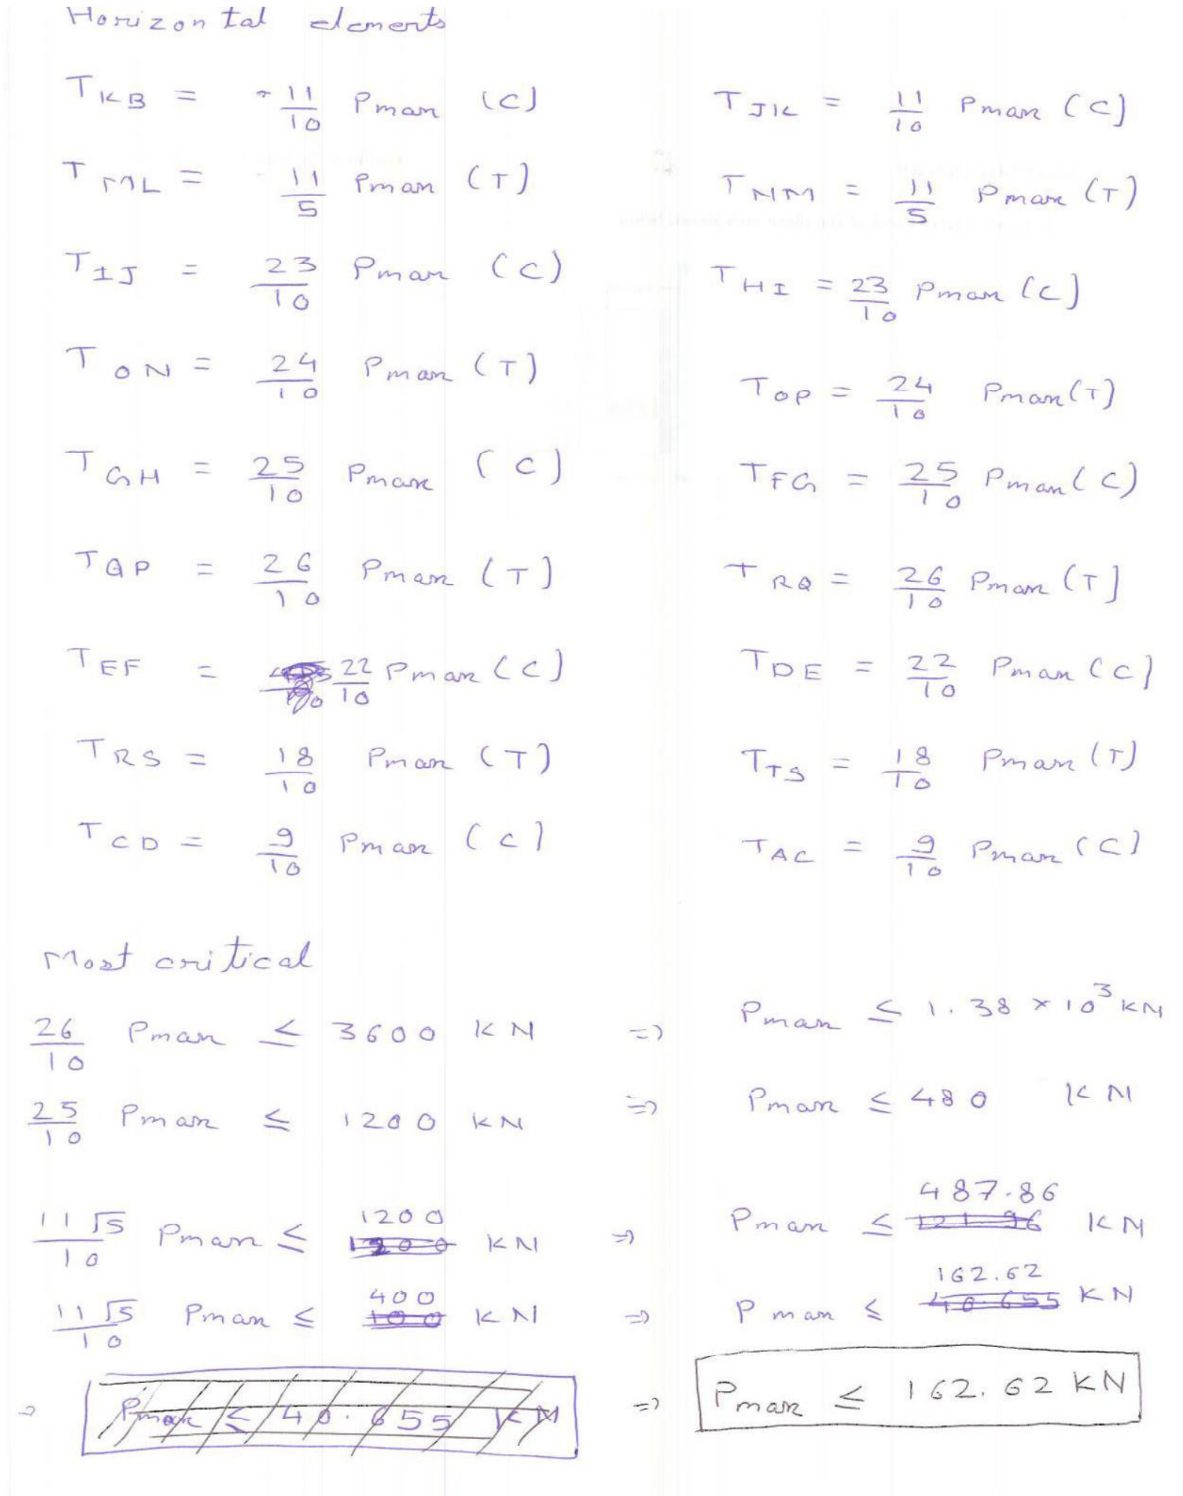 Horizontal elements
T KB = - 11/10 Pmax (C) T JK = 11/10 Pmax (C)
T ML = 11/5 Pmax (T) T NM = 11/5 Pmax (T)
T IJ = 23/10 Pmax (C) T HI = 23/10 Pmax (C)
T ON = 24/10 Pmax (T) T OP = 24/10 Pmax (T)
T GH = 25/10 Pmax (C) T FG = 25/10 Pmax (C)
T QP = 26/10 Pmax (T) T RQ = 26/10 Pmax (T)
T EF = 22/10 Pmax (C) T DE = 22/10 Pmax (C)
T RS = 18/10 Pmax (T) T TS = 18/10 Pmax (T)
T CD = 9/10 Pmax (C) T AC = 9/10 Pmax (C)
Most critical
26/10 Pmax ≤ 3600 KN => Pmax ≤ 1.38 × 10³ KN
25/10 Pmax ≤ 1200 KN => Pmax ≤ 480 KN
11√5/10 Pmax ≤ 1200 KN => Pmax ≤ 487.86 KN
11√5/10 Pmax ≤ 400 KN => Pmax ≤ 162.62 KN
=> Pmax ≤ 40.655 KN => Pmax ≤ 162.62 KN